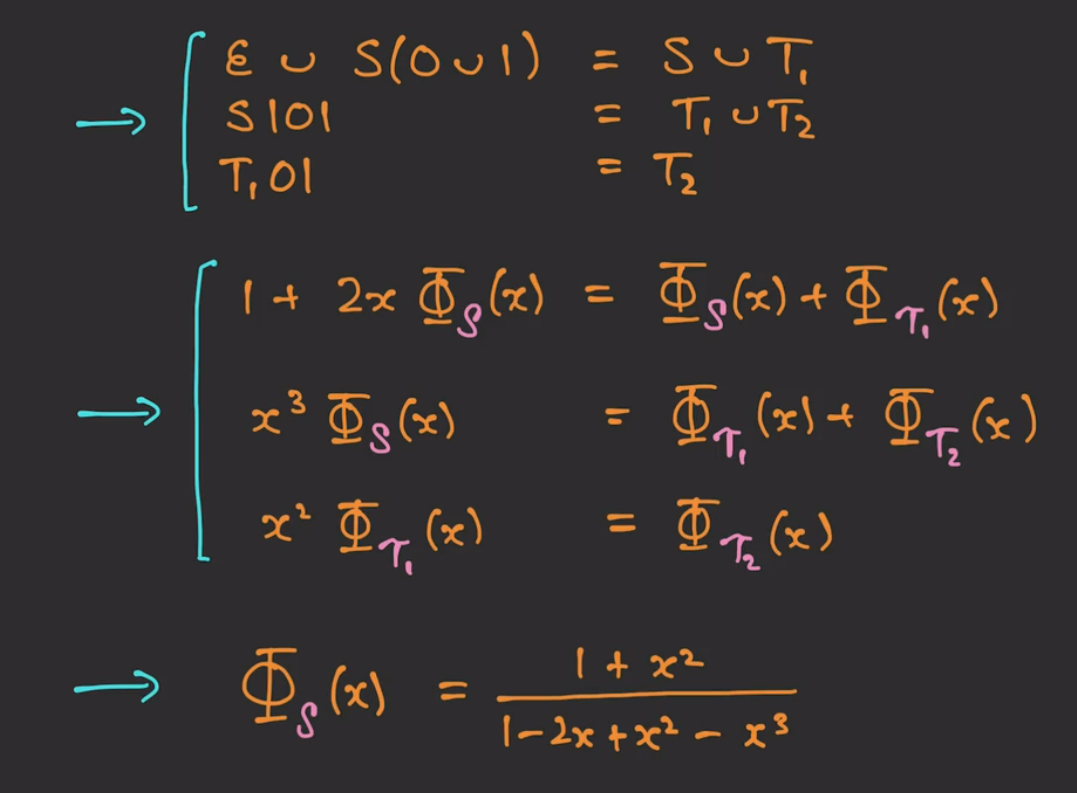 → ε ∪ S(0∪1) = S ∪ T₁
S101 = T₁ ∪ T₂
T₁01 = T₂
→ 1 + 2x Φ_S(x) = Φ_S(x) + Φ_T₁(x)
x³ Φ_S(x) = Φ_T₁(x) + Φ_T₂(x)
x² Φ_T₁(x) = Φ_T₂(x)
→ Φ_S(x) = (1 + x²) / (1 - 2x + x² - x³)